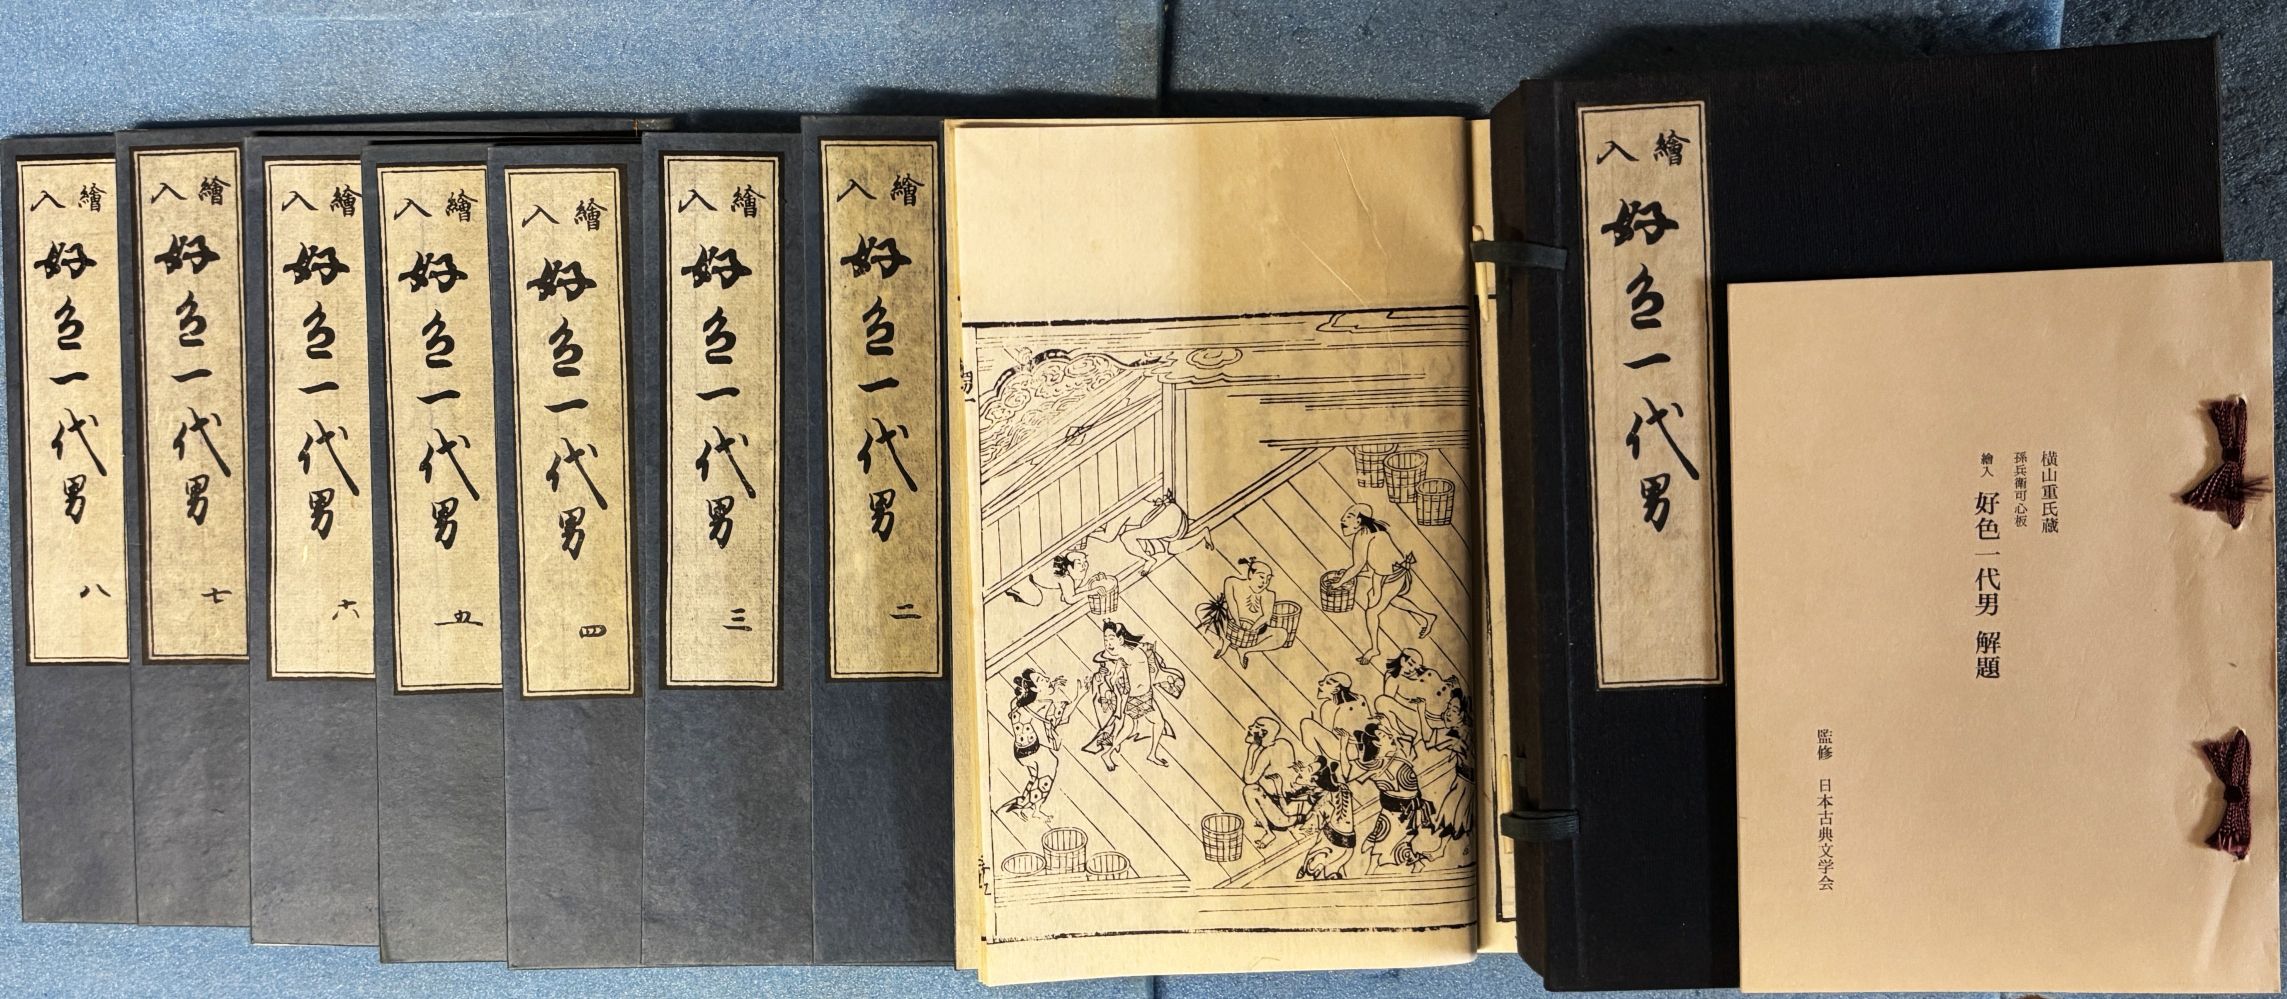 横山重氏蔵
孫兵衛可心板
繪入 好色一代男 解題
監修 日本古典文学会
繪入 好色一代男
繪入 好色一代男 二
繪入 好色一代男 三
繪入 好色一代男 四
繪入 好色一代男 五
繪入 好色一代男 六
繪入 好色一代男 七
繪入 好色一代男 八